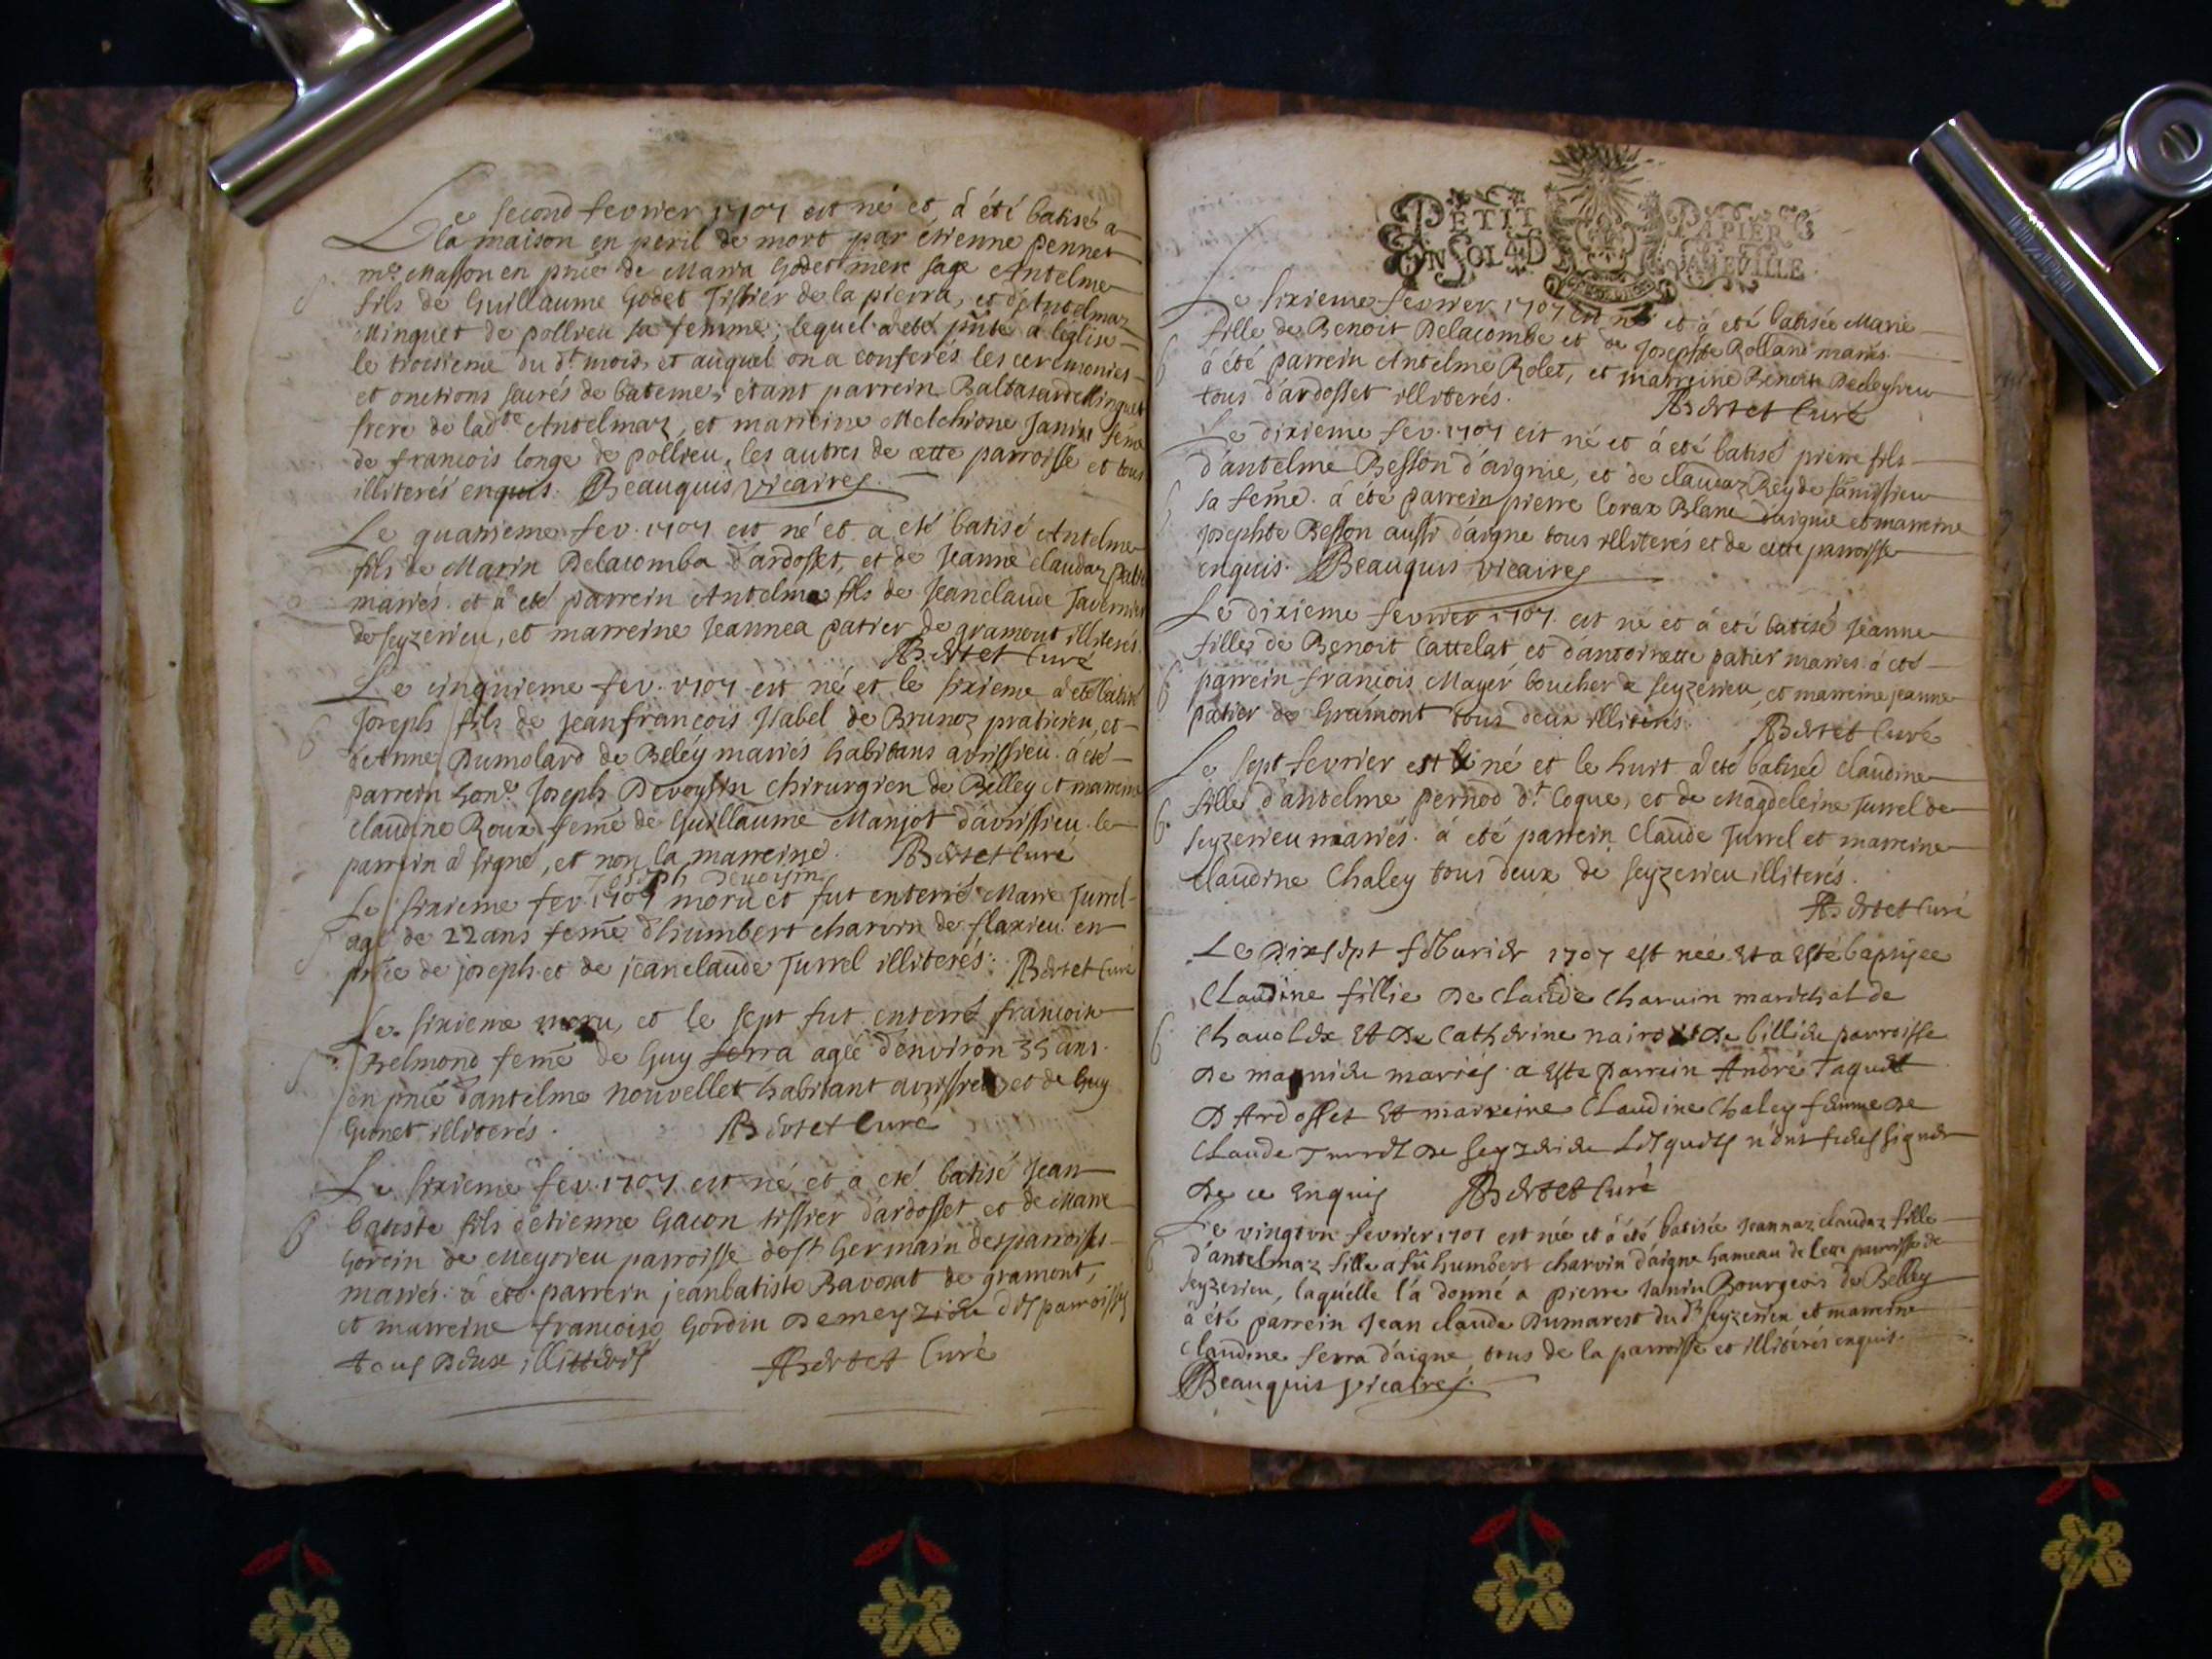 Le second fevrier 1707 est né et à été batisé a
la maison en peril de mort par etienne pennet
me Masson en pnce de Marra Godet mere sage Antelme
fils de Guillaume Godet Tissier de la pierra, et d'Antelmaz
Minquet de pollieu sa femme; lequel a eté pnté a l'eglise
le troisieme du dt mois, et auquel on a conferés les ceremonies
et onctions sacrés de bateme, étant parrein Baltasard Minquet
frere de ladte Antelmaz, et marreine Melchione Janin feme
de francois longe de pollieu, les autres de cette parroisse et tous
illiterés enquis. Beauquis vicaire
Le quatrieme fev. 1707 est né et a eté batisé Antelme
fils de Marin Delacomba d'ardosset, et de Jeanne claudaz
mariés. et a eté parrein Antelme fils de Jeanclaude Tavernier
de seyzerieu, et marreine Jeannea patier de gramont illiterés.
Bertet Curé
Le cinquieme fev. 1707 est né et le sixieme a eté batisé
Joseph fils de Jeanfrancois Isabel de Brunoz praticien, et
d'Anne Dumolard de Beley mariés habitans avrissieu. a eté
parrein honr. Joseph Devoysin chirurgien de Belley et marreine
Claudine Roux feme de Guillaume Manjot d'avrissieu. le
parrein a signé, et non la marreine. Bertet Curé
Joseph Devoysin
Le sixieme fev. 1707 moru et fut enterré Marie Jurrel
agé de 22 ans feme d'humbert charvin de flaxieu en
pnce de joseph et de jeanclaude Jurrel illiterés. Bertet Curé
Le sixieme moru, et le sept fut enterré francoise
Belmond feme de Guy serra agée d'environ 35 ans.
en pnce d'antelme nouvellet habitant avrissieu et de Guy
Gionet illiterés. Bertet Curé
Le sixieme fev. 1707 est né et a eté batisé Jean
batiste fils d'etienne Gacon tissier d'ardosset et de Marie
Gordin de Meyorieu parroisse de st Germain des parroisses
mariés. à eté parrein jeanbatiste Ravorat de gramont,
et marreine francoise Gordin de meyzieu des parroisses
tous deux illitterés Bertet Curé
PETIT PAPIER
UN SOL 4 D LA FEUILLE
Le sixieme fevrier 1707 est né et à eté batisée Marie
fille de Benoit Delacombe et de Josephte Rolland mariés.
à été parrein Antelme Rolet, et marreine Benoite
tous d'ardosset illiterés. Bertet Curé
Le dixieme fev. 1707 est né et à eté batisé pierre fils
d'antelme Besson d'aignie, et de claudaz Rey de
sa feme. à été parrein pierre Corax Blanc d'aignie et marreine
Josephte Besson aussi d'aigne tous illiterés et de cette parroisse
enquis. Beauquis vicaire
Le dixieme fevrier 1707. est né et à eté batisé Jeanne
fille de Benoit Cattelat et d'antoinette patier mariés. à eté
parrein francois Mayer boucher de seyzerieu, et marreine jeanne
patier de Gramont tous deux illiterés. Bertet Curé
Le sept fevrier est né et le huit a eté batisée claudine
fille d'antelme pernod dt Coque, et de Magdeleine Jurrel de
seyzerieu mariés. à été parrein Claude Jurrel et marreine
Claudine Chaley tous deux de seyzerieu illiterés.
Bertet Curé
Le dixsept feburier 1707 est née et a esté baptisee
Claudine fillie de Claude Charuin marechal de
et de Catherine de billieu parroisse
de magnieu mariés. a esté parrein André Taquet
d'Ardosset et marreine Claudine Chaley femme de
Claude Jurrel de seyzerieu lesquels n'ont sceu signer
de ce enquis Bertet Curé
Le vingtun fevrier 1707 est né et à été batisée Jeannaz claudaz fille
d'antelmaz fille a fû humbert charvin d'aigne hameau de cette parroisse de
seyzerieu, laquelle l'a donné a pierre Janin Bourgeois de Belley
à été parrein Jean claude Dumarest du dt seyzerieu et marreine
claudine serra d'aigne, tous de la parroisse et illiterés enquis.
Beauquis vicaire